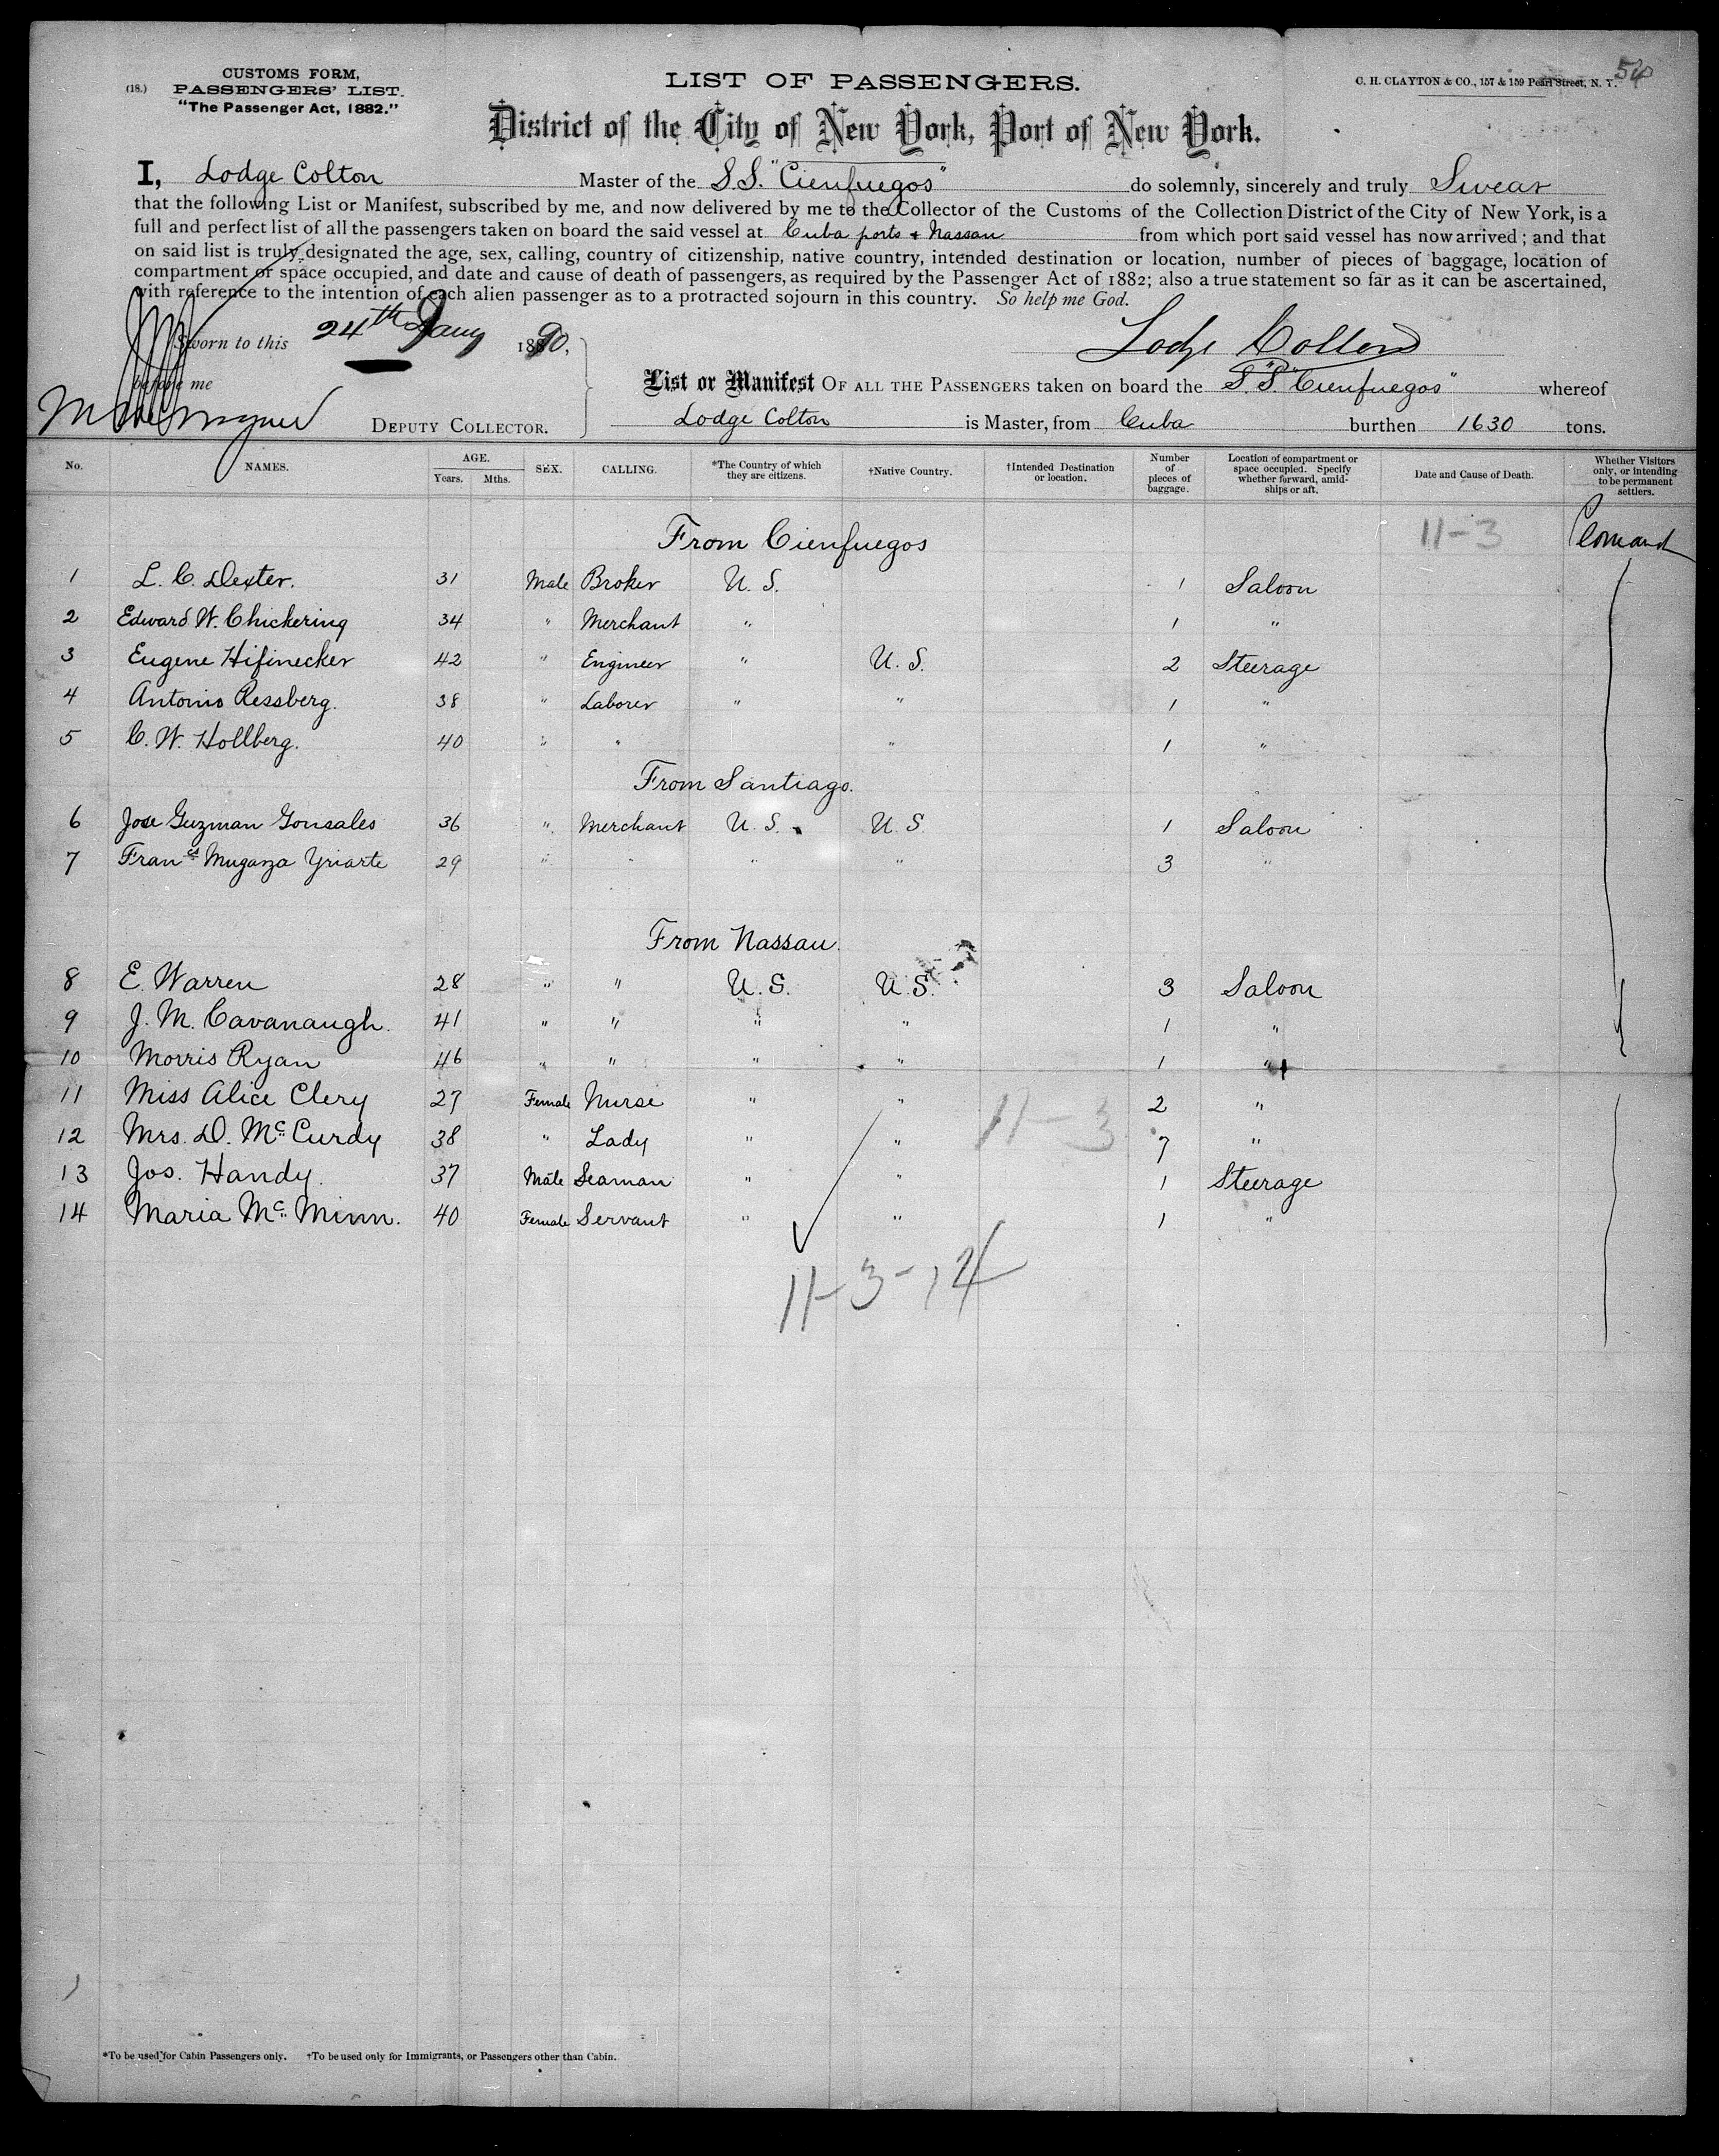 54
CUSTOMS FORM,
(18.) PASSENGERS' LIST.
"The Passenger Act, 1882."
LIST OF PASSENGERS.
C. H. CLAYTON & CO., 157 & 159 Pearl Street, N. Y.
District of the City of New York, Port of New York.
I, Lodge Colton Master of the S.S. "Cienfuegos" do solemnly, sincerely and truly Swear
that the following List or Manifest, subscribed by me, and now delivered by me to the Collector of the Customs of the Collection District of the City of New York, is a
full and perfect list of all the passengers taken on board the said vessel at Cuba ports & Nassau from which port said vessel has now arrived; and that
on said list is truly designated the age, sex, calling, country of citizenship, native country, intended destination or location, number of pieces of baggage, location of
compartment or space occupied, and date and cause of death of passengers, as required by the Passenger Act of 1882; also a true statement so far as it can be ascertained,
with reference to the intention of each alien passenger as to a protracted sojourn in this country. So help me God.
Sworn to this 24th Jany 1890,
Lodge Colton
before me
List or Manifest OF ALL THE PASSENGERS taken on board the S.S. "Cienfuegos" whereof
DEPUTY COLLECTOR.
Lodge Colton is Master, from Cuba burthen 1630 tons.
No. NAMES. AGE. Years. Mths. SEX. CALLING. *The Country of which they are citizens. †Native Country. †Intended Destination or location. Number of pieces of baggage. Location of compartment or space occupied. Specify whether forward, amidships or aft. Date and Cause of Death. Whether Visitors only, or intending to be permanent settlers.
From Cienfuegos 11-3
1 L. C. Dexter. 31 Male Broker U. S. 1 Saloon
2 Edward W. Chickering 34 " Merchant " 1 "
3 Eugene Hifinecker 42 " Engineer " U. S. 2 Steerage
4 Antonio Ressberg. 38 " Laborer " " 1 "
5 C. W. Hollberg. 40 " " " 1 "
From Santiago.
6 Jose Guzman Gonsales 36 " Merchant U. S. U. S. 1 Saloon
7 Fran^cs Mugarza Yriarte 29 " " " " 3 "
From Nassau.
8 E. Warren 28 " " U. S. U. S. 3 Saloon
9 J. M. Cavanaugh. 41 " " " " 1 "
10 Morris Ryan 46 " " " " 1 "
11 Miss Alice Clery 27 Female Nurse " " 2 "
11-3
12 Mrs. D. McCurdy 38 " Lady " " 7 "
13 Jos. Handy. 37 Male Seaman " " 1 Steerage
14 Maria McMinn. 40 Female Servant " " 1 "
11-3-14
*To be used for Cabin Passengers only. †To be used only for Immigrants, or Passengers other than Cabin.